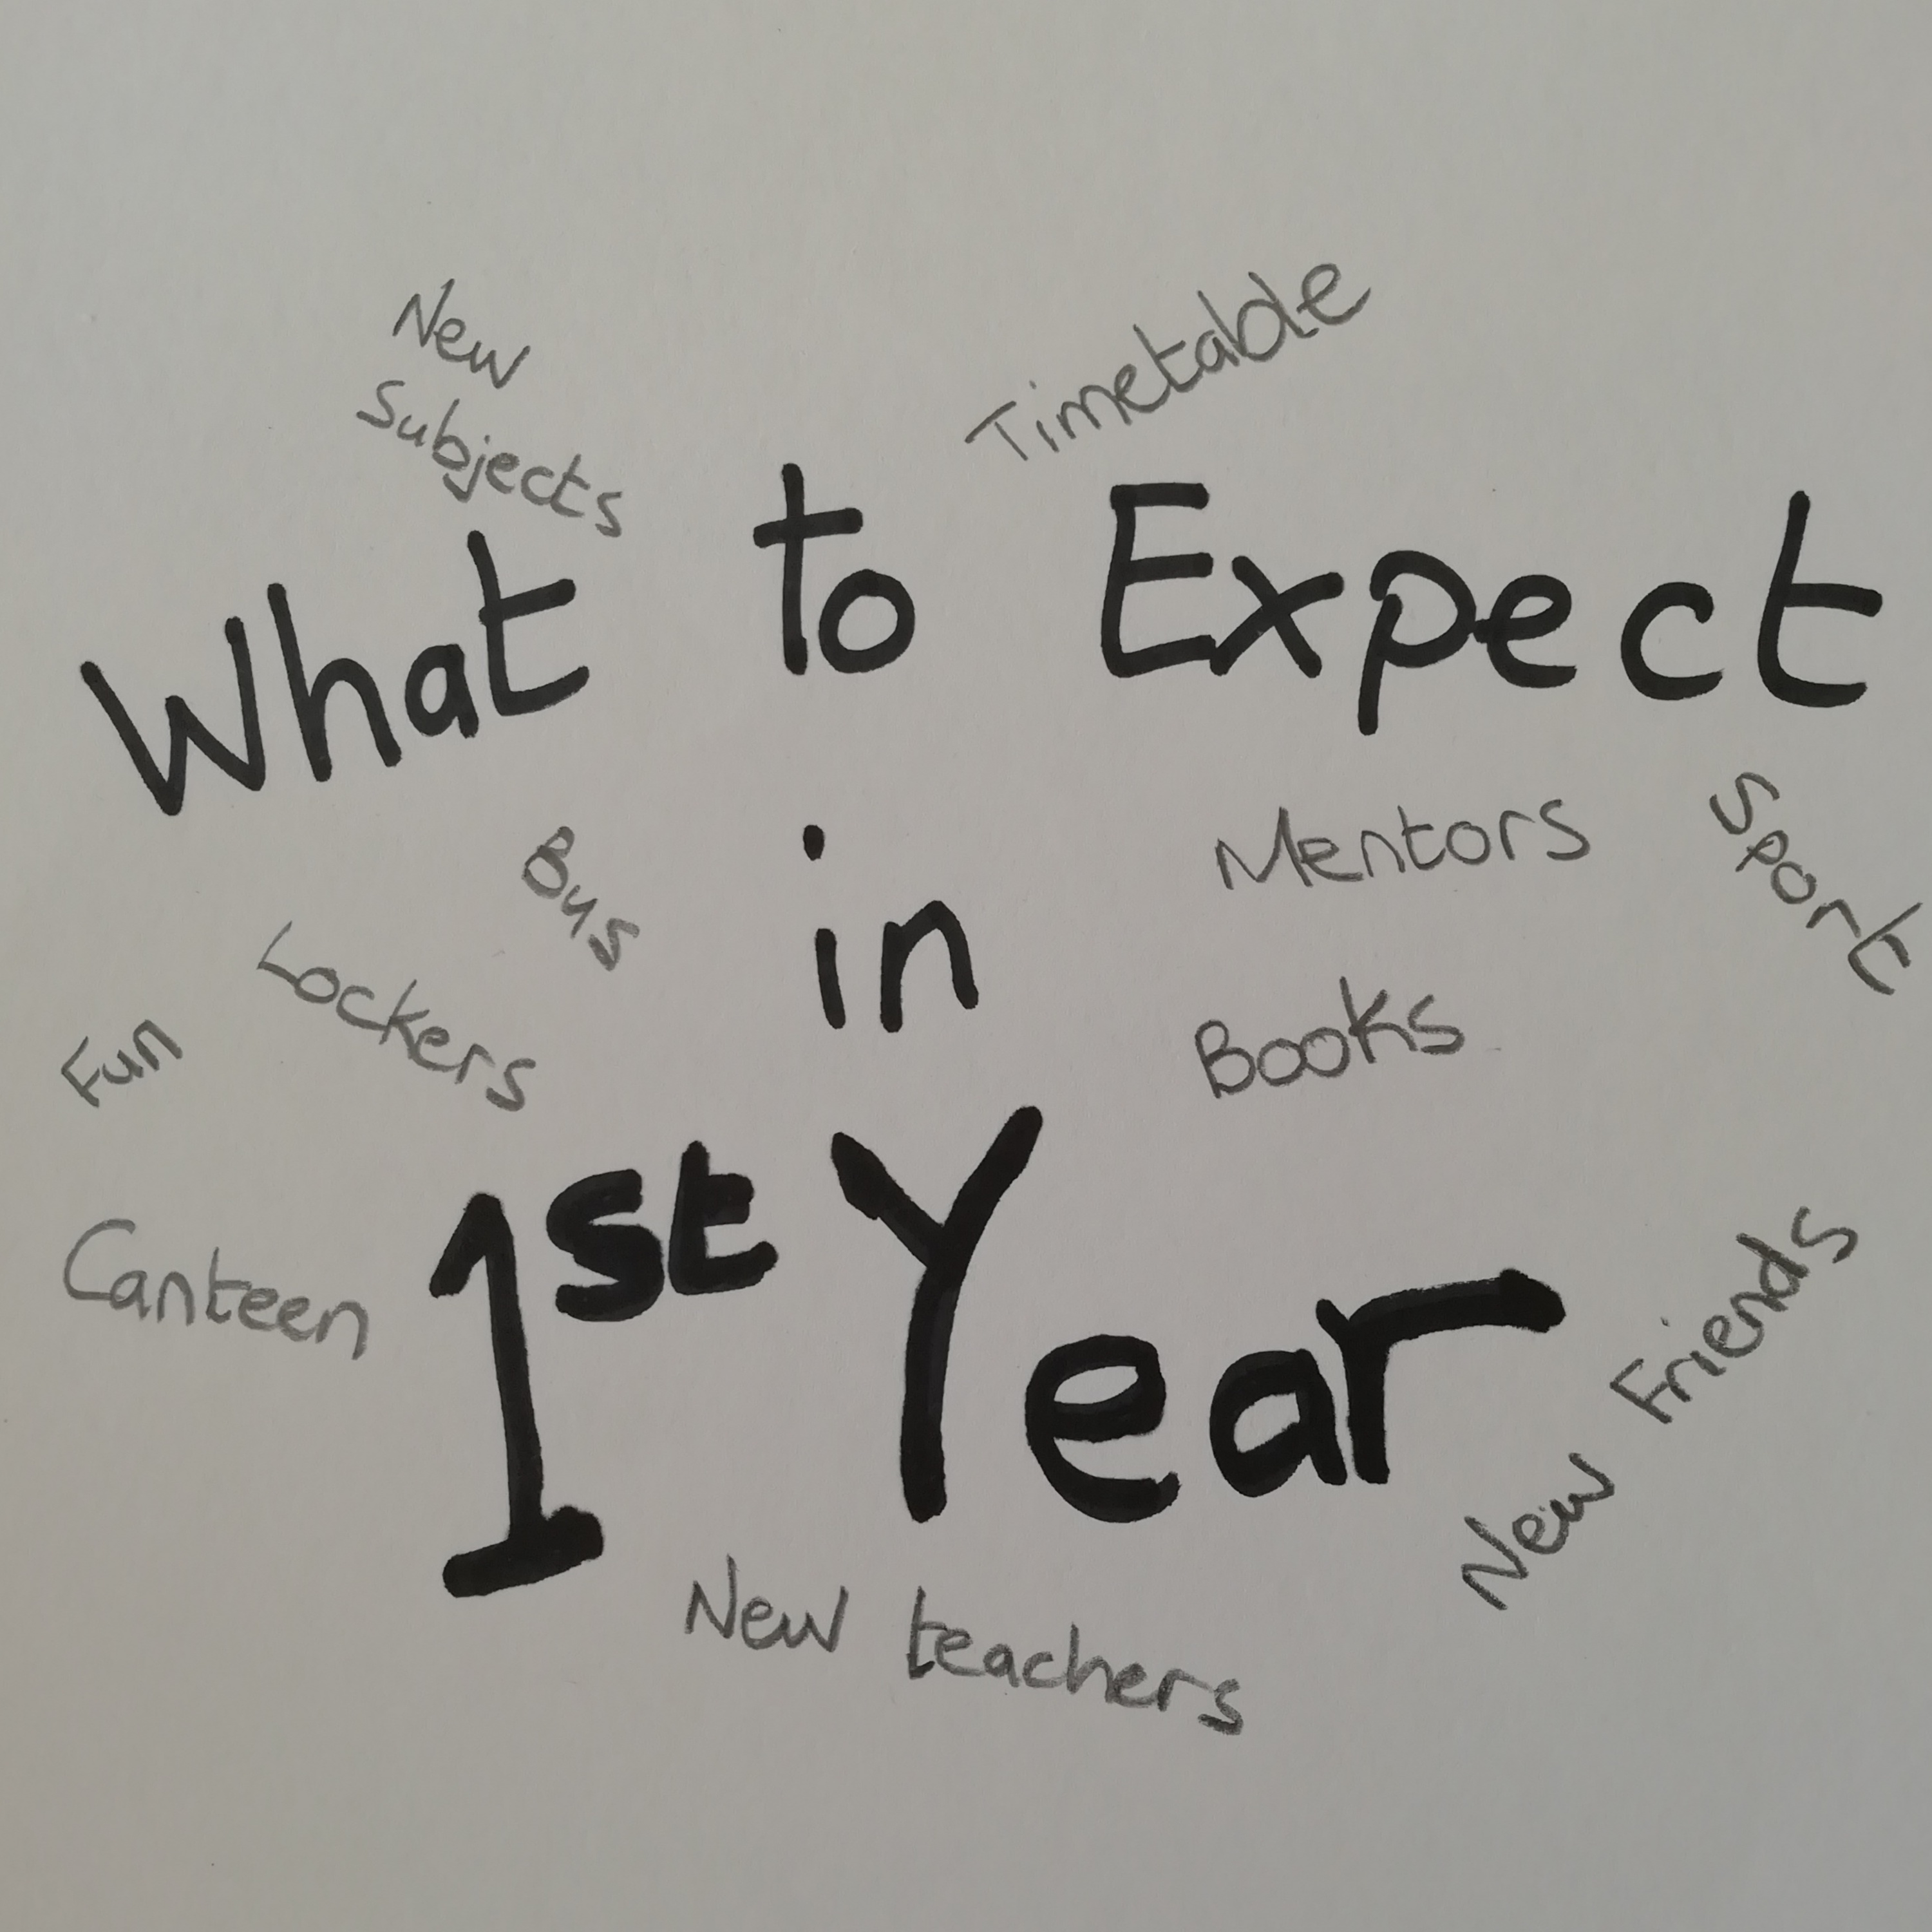 New
Subjects
Timetable
What to Expect
Bus
Mentors
Sport
in
Lockers
Fun
Books
1st Year
Canteen
New Friends
New teachers